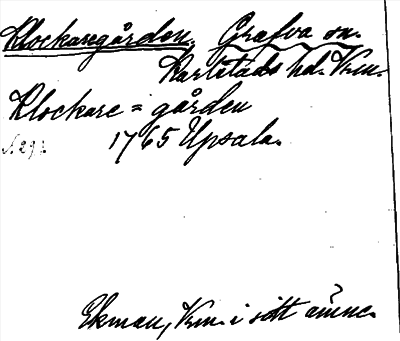 Klockaregården, Grafva sn.
Karlstads hd. Vrm.
Klockare = gården
1765 Upsala.
s. 291.
Ekman, Vrm. i sitt ämne.